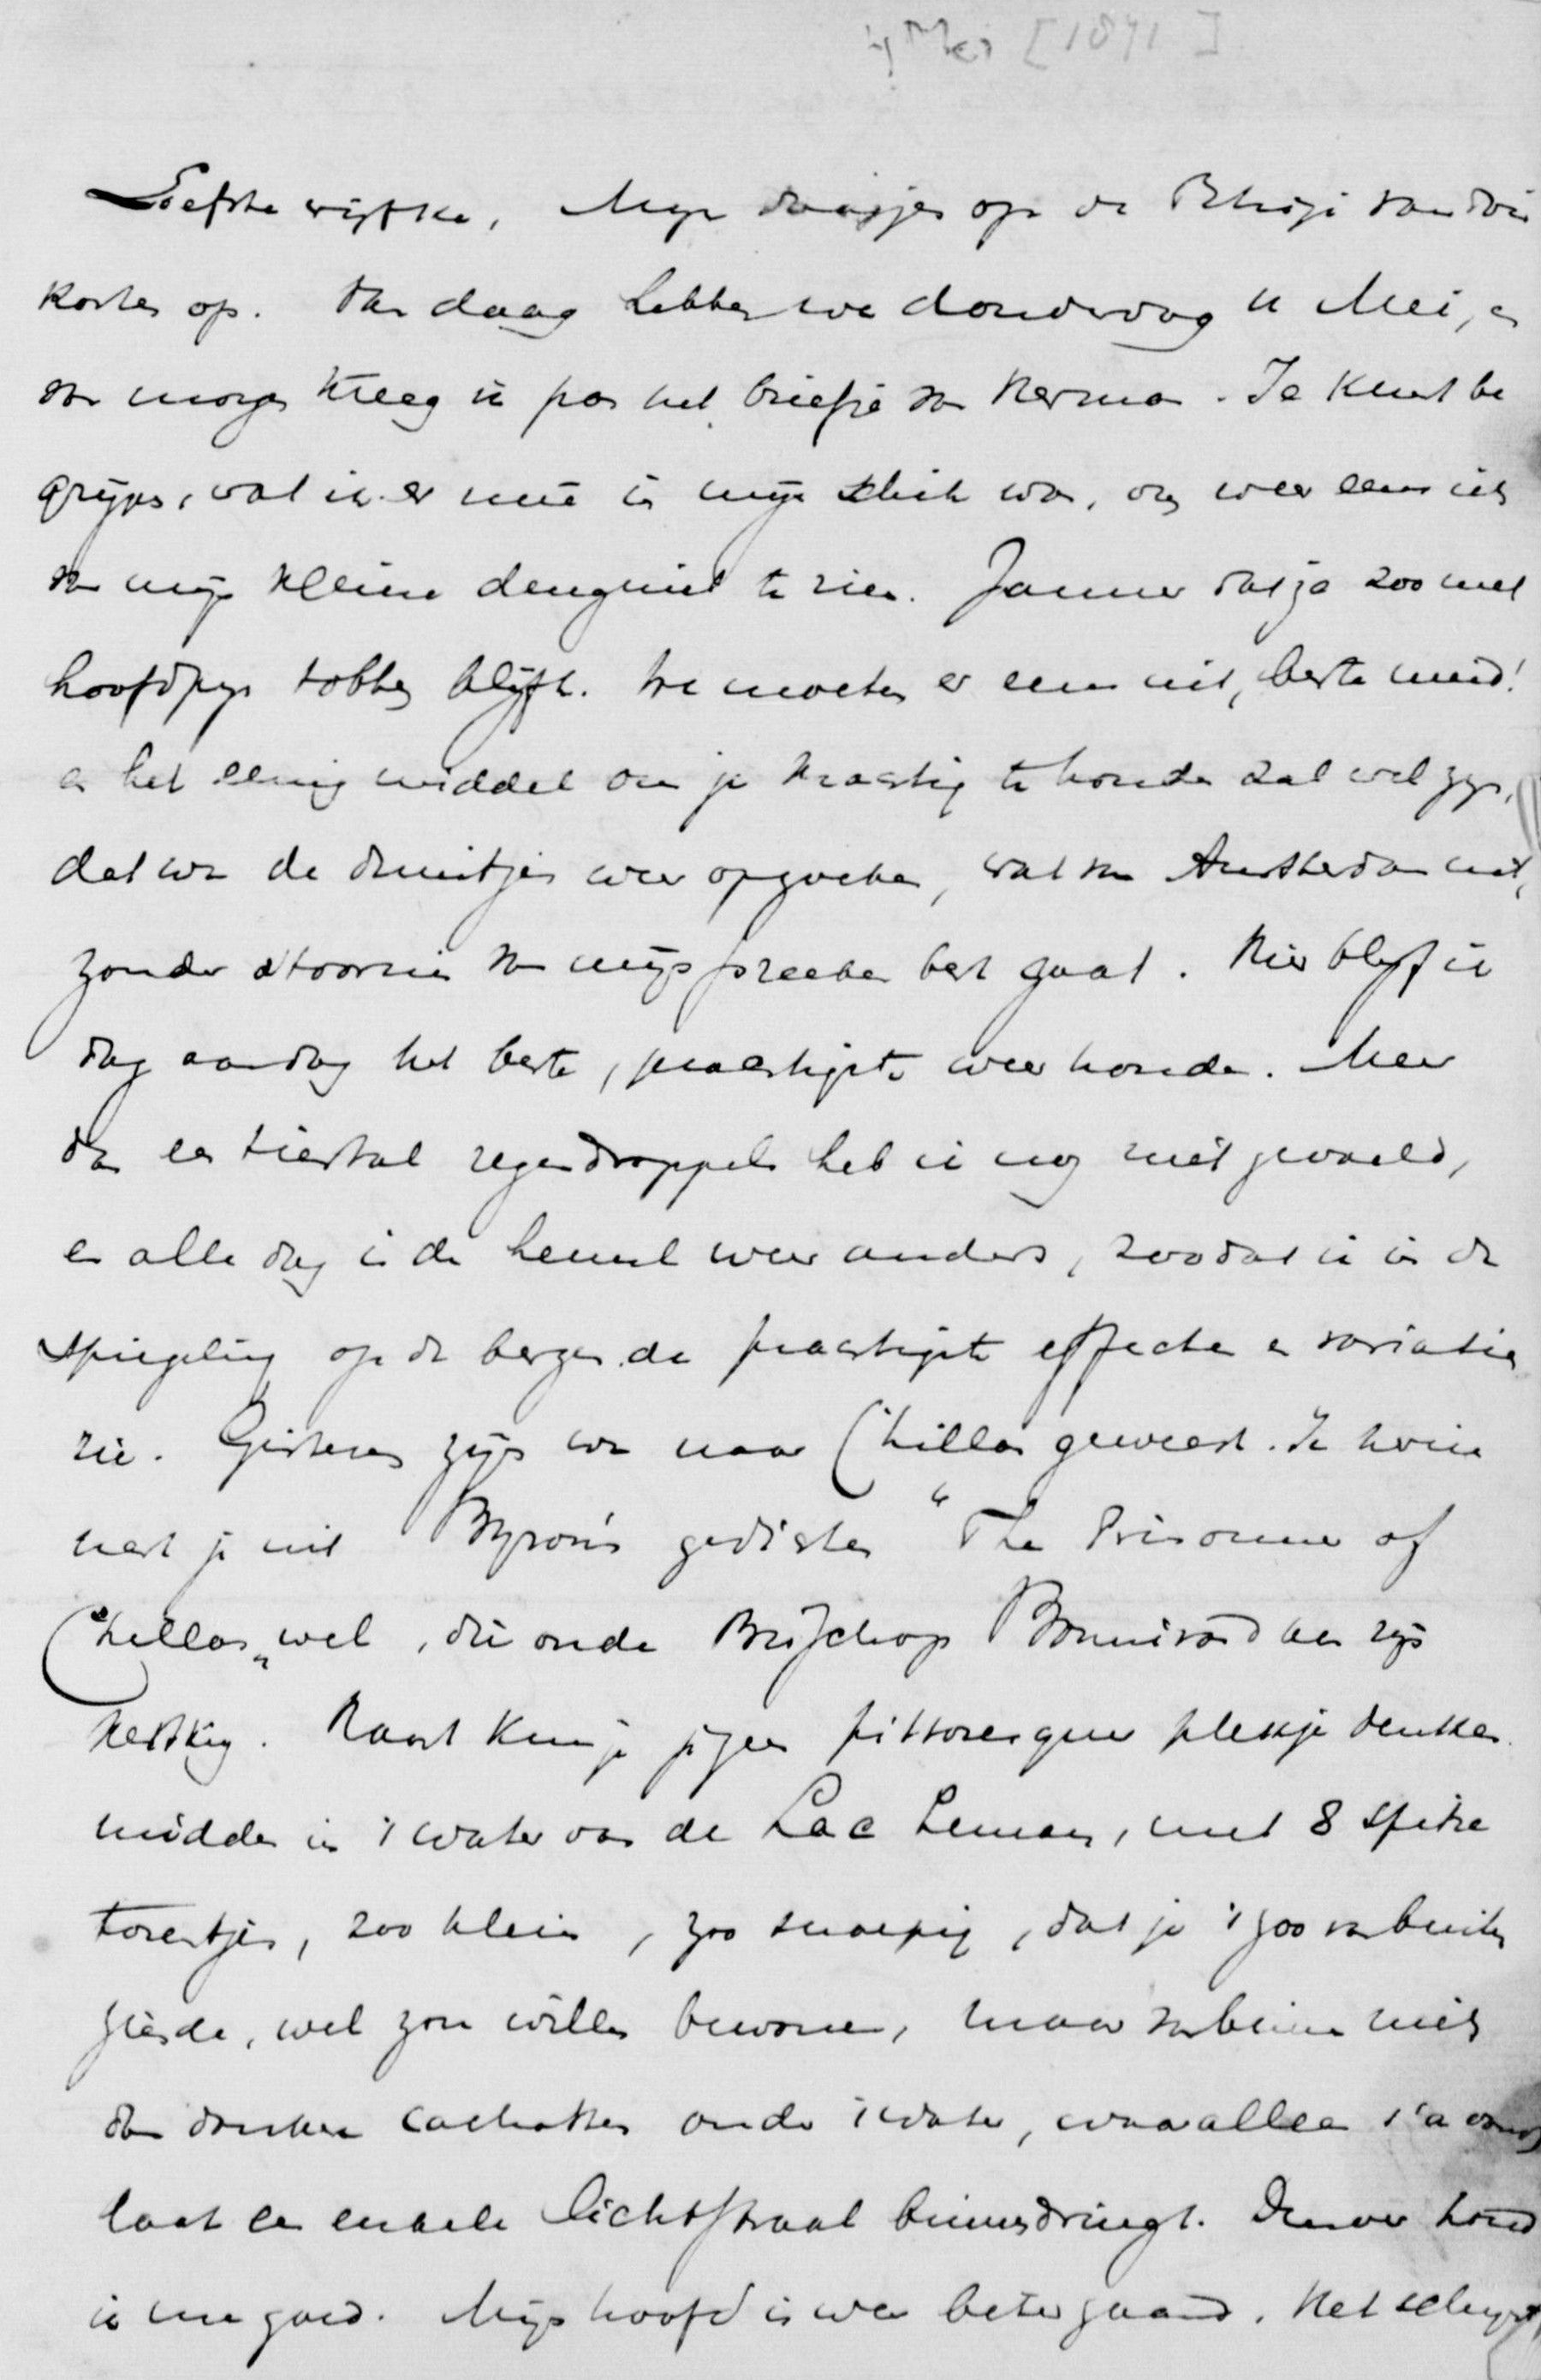 Mei [1891]
Liefste wijfke, Mijn daagjes op de
korten op. Van daag hebben we donderdag 11 Mei, en
van morgen kreeg ik pas het briefje van Herman. Je kunt be
grijpen, wat ik er mee in mijn schik was, om weer eens iets
van mijn kleine deugniet te zien. Jammer dat je zoo met
hoofdpijn tobben blijft. We moeten er eens uit, beste meid!
en het eenig middel om je krachtig te houden zal wel zijn,
dat we de duintjes weer opzoeken, wat van Amsterdam uit,
zonder stoornis van mijn preeken best gaat. Hier blijf ik
dag aan dag het beste, prachtigste weer houden. Meer
dan een tiental regendroppels heb ik nog niet gevoeld,
en alle dag is de hemel weer anders, zoodat ik in de
spiegeling op de bergen de prachtigste effecten en variatien
zie. Gisteren zijn we naar Chillon geweest. Je herin
nert je uit Byron's gedichten "The Prisonner of
Chillon" wel, die oude Bisschop Bonnivard aan zijn
ketting. Nooit kun je pittoresquer plekje denken.
midden in 't water van de Lac Leman, met 8 spitse
torentjes, zoo klein, zoo snoepig, dat je 't zoo van buiten
ziende, wel zou willen bewonen, maar van binnen niets
dan donkere cachotten onder 't water, waar alleen 's avonds
laat een enkele lichtstraal binnendringt. houd
ik me goed. Mijn hoofd is weer beter gaand. Het schijnt,